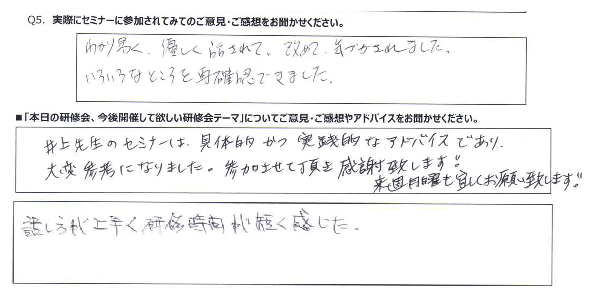 Q5. 実際にセミナーに参加されてみてのご意見・ご感想をお聞かせください。
わかり易く、優しく話されて、改めて気づかされました。
いろいろなところを再確認できました。
■「本日の研修会、今後開催して欲しい研修会テーマ」についてご意見・ご感想やアドバイスをお聞かせください。
井上先生のセミナーは、具体的かつ実践的なアドバイスであり、
大変参考になりました。参加させて頂き感謝致します!!
来週月曜も宜しくお願い致します!!
話し方が上手く研修時間が短く感じた。